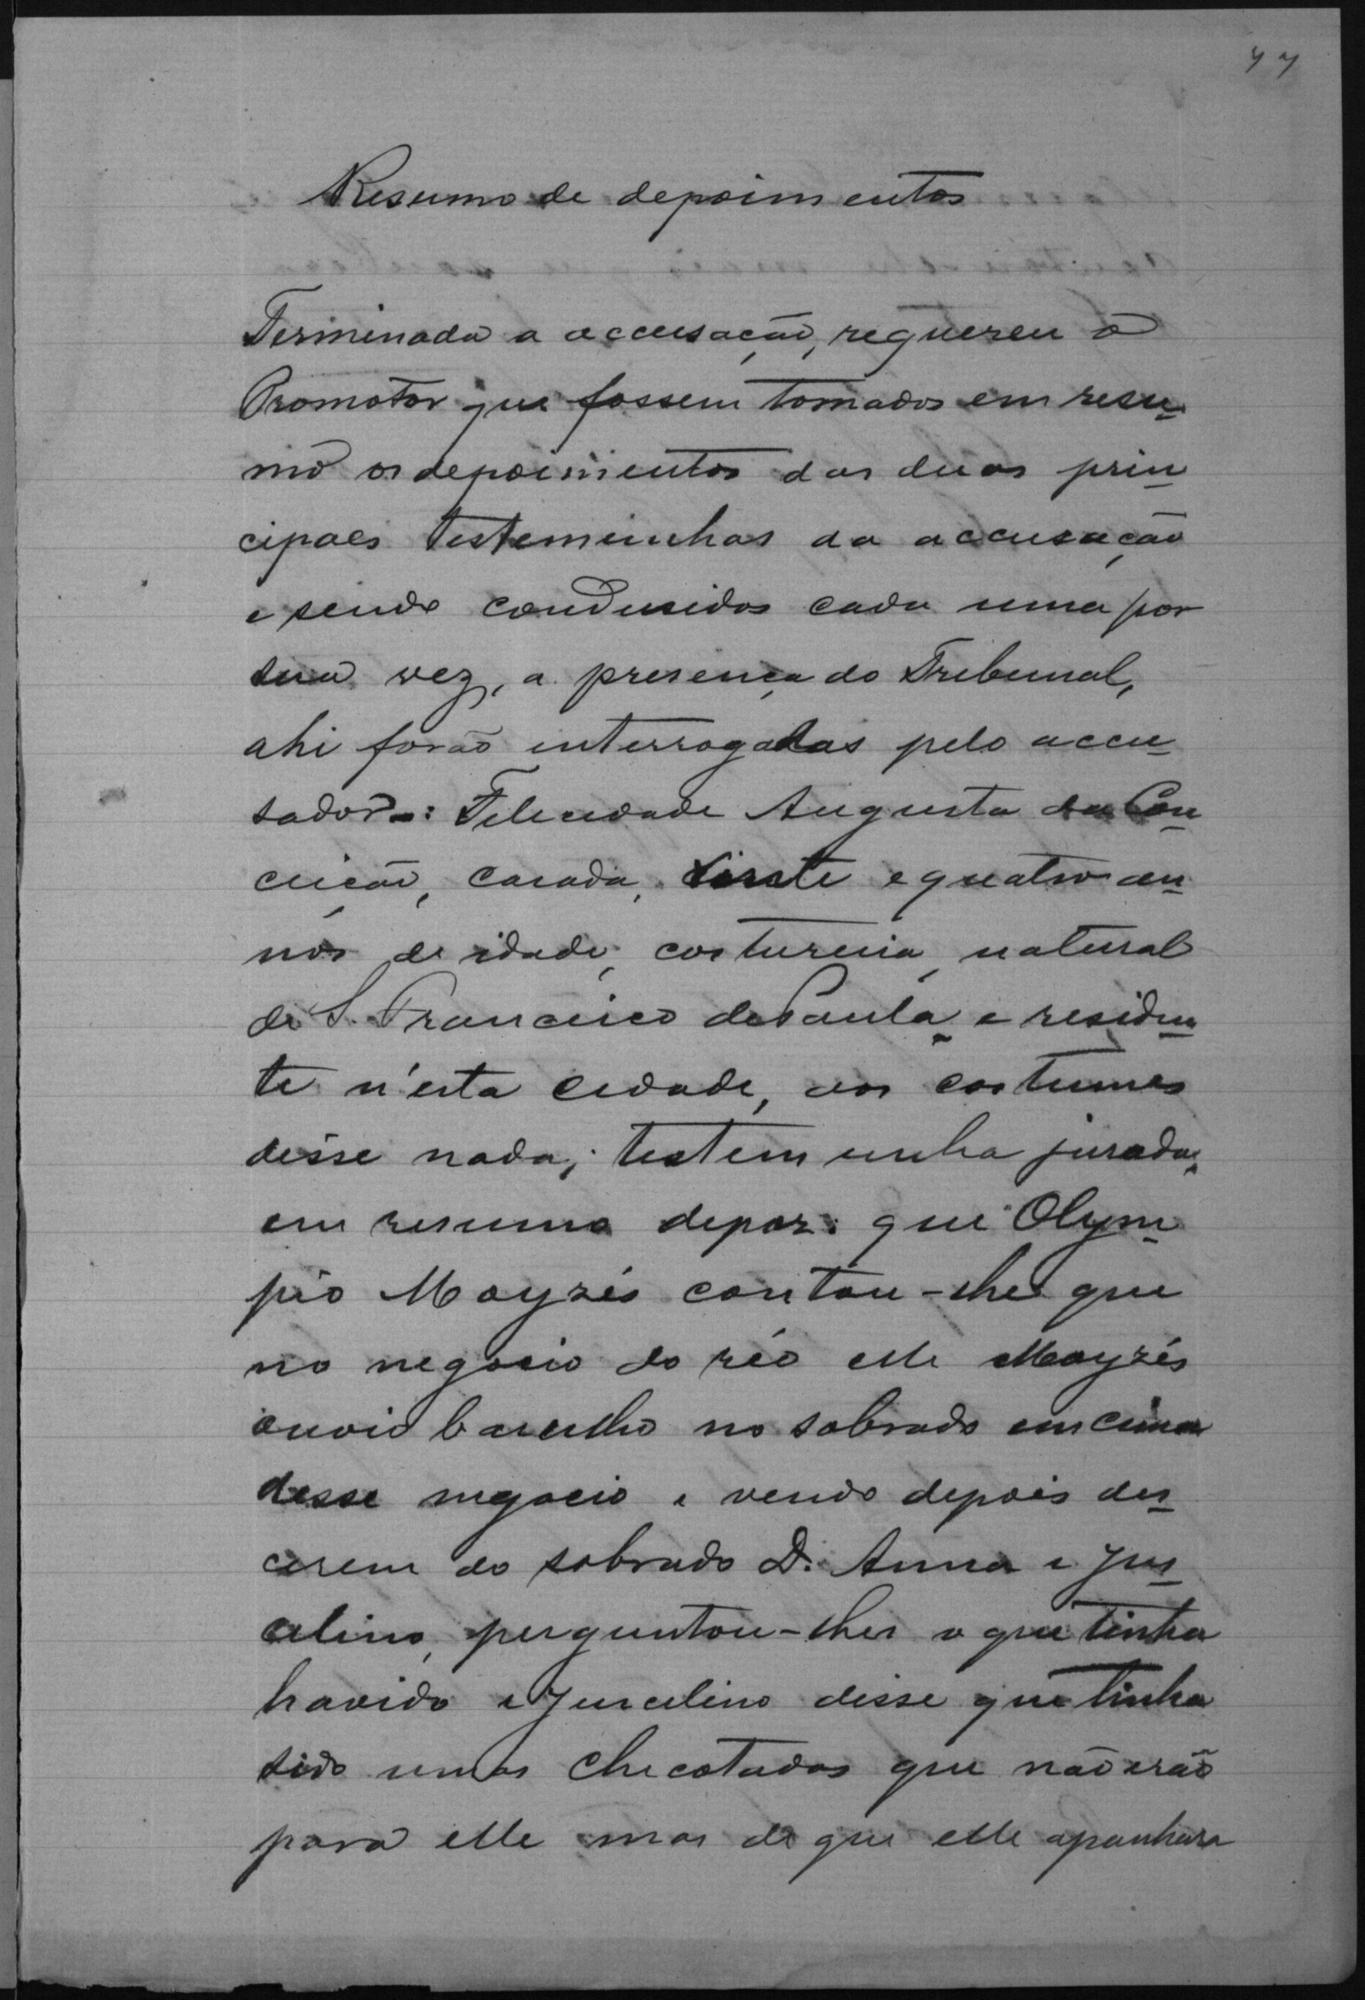 77
Resumo de depoimentos
Terminada a accusação, requereu o
Promotor que fossem tomados em resu-
mo os depoimentos das duas prin-
cipaes testeminhas da accusação
e sendo condusidas cada uma por
sua vez, a presença do Tribunal,
ahi forão interrogadas pelo accu-
sador: Felicidade Augusta da Con-
ceição, casada, vinte e quatro an-
nos de idade, costureira, natural
de S. Francisco de Paula e residen-
te n'esta cidade, aos costumes
disse nada; testemunha jurada,
em resumo depoz: que Olym-
pio Moyzés contou-lhe que
no negocio do réo elle Moyzés
ouvio barulho no sobrado em cima
desse negocio e vendo depois des-
cerem do sobrado D. Anna e Jus-
celino, perguntou-lhes o que tinha
havido e Juscelino disse que tinha
sido umas chicotadas que não erão
para elle mas de que elle apanhara